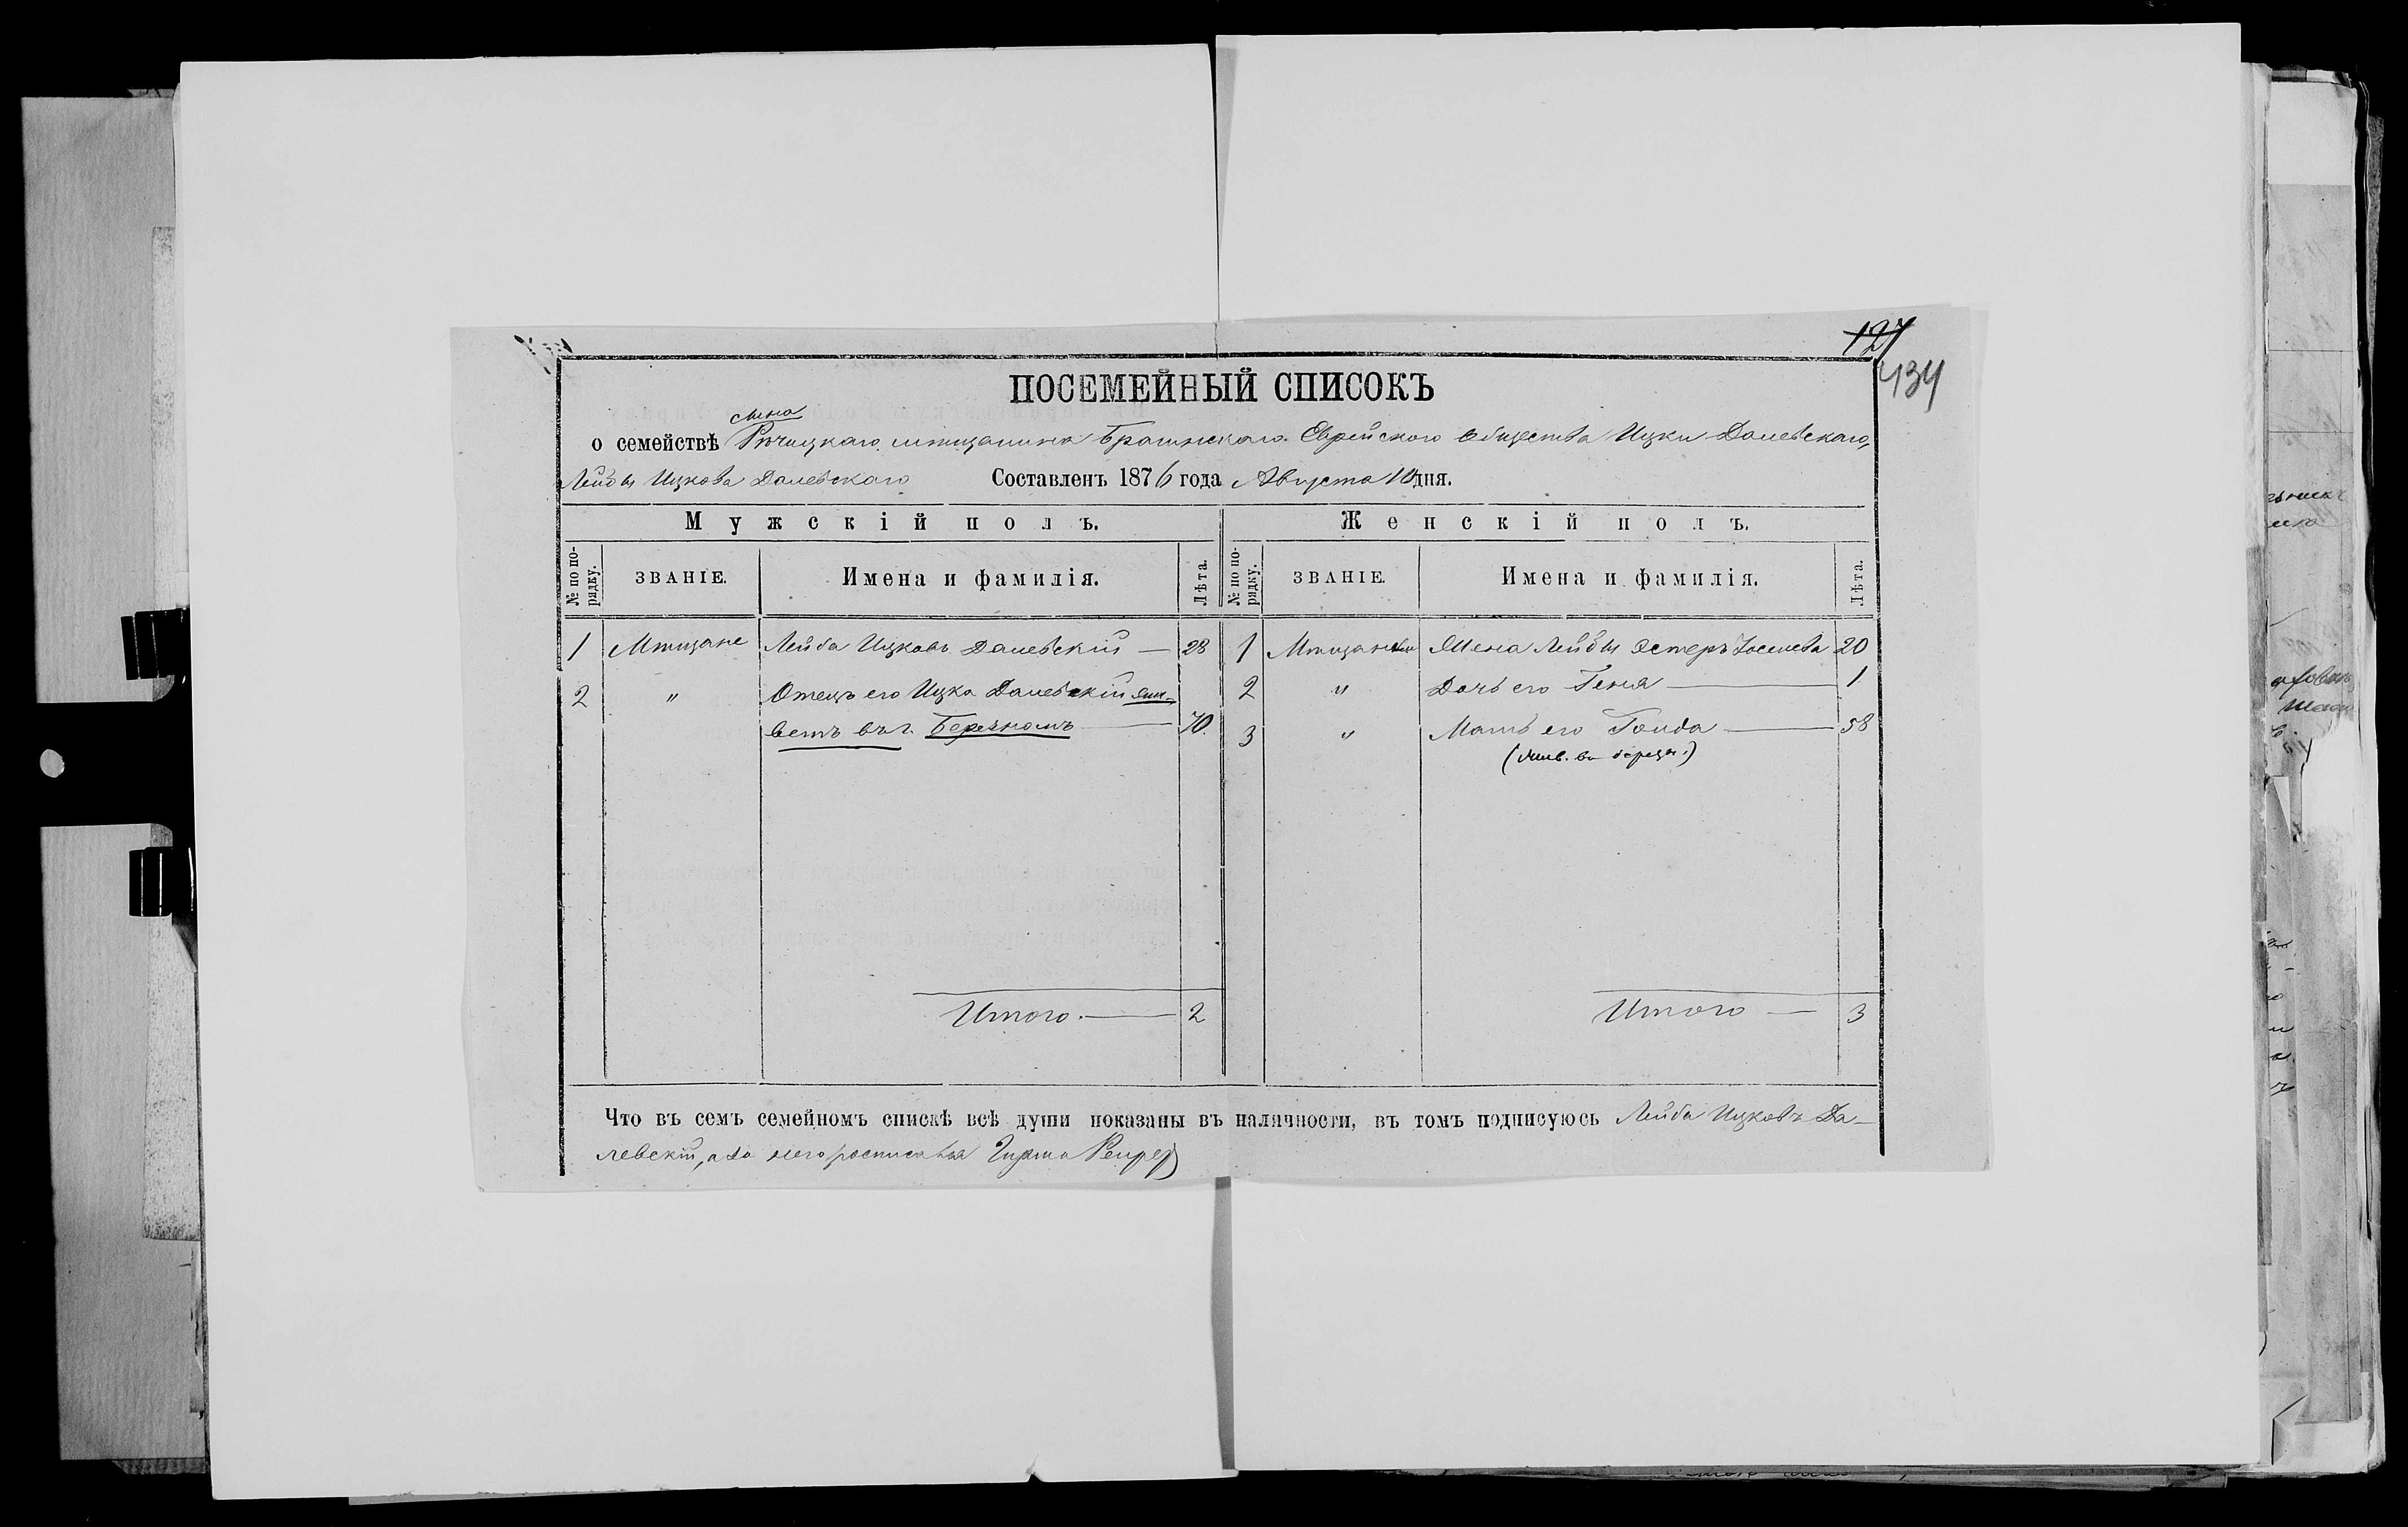 127
434
ПОСЕМЕЙНЫЙ СПИСОКЪ
сына
о семействѣ Рѣчицкаго мѣщанина Брагинскаго Еврейского Общества Ицки Далевскаго,
Лейбы Ицкова Далевскаго Составленъ 1876 года Августа 10 дня.
Мужскій полъ. Женскій полъ.
№ по порядку. ЗВАНІЕ. Имена и фамилія. Лѣта. № по порядку. ЗВАНІЕ. Имена и фамилія. Лѣта.
1 Мѣщане Лейба Ицковъ Далевскій — 28 1 Мѣщанки Жена Лейбы Эстеръ Іоселева 20
2 " Отецъ его Ицка Далевскій жи- 2 " Дочь его Геня — 1
ветъ въ г. Березномъ — 70. 3 " Мать его Голда — 58
(жив. въ)
Итого. — 2 Итого — 3
Что въ семъ семейномъ спискѣ всѣ души показаны въ наличности, въ томъ подписуюсь Лейба Ицковъ Да-
левскій, а за него росписался Гирша